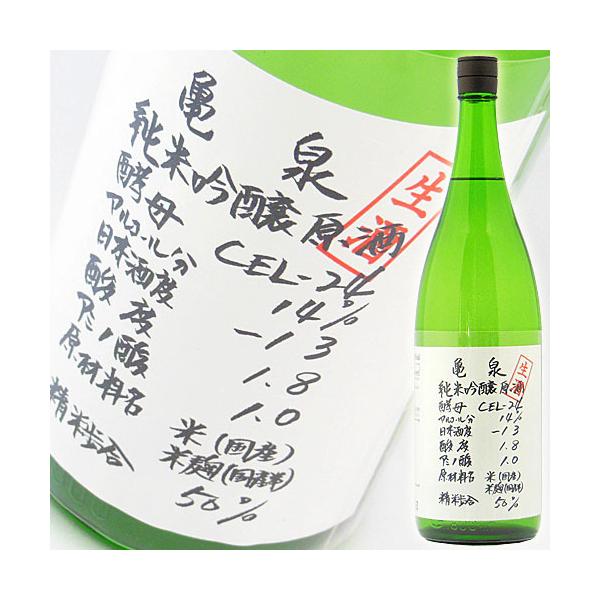 亀泉
純米吟醸原酒
生酒
酵母 CEL-24
アルコール分 14%
日本酒度 -13
酸度 1.8
アミノ酸 1.0
原材料名 米(国産)
米麹(国産米)
精米歩合 50%
亀泉
純米吟醸原酒
生酒
酵母 CEL-24
アルコール分 14%
日本酒度 -13
酸度 1.8
アミノ酸 1.0
原材料名 米(国産)
米麹(国産米)
精米歩合 50%